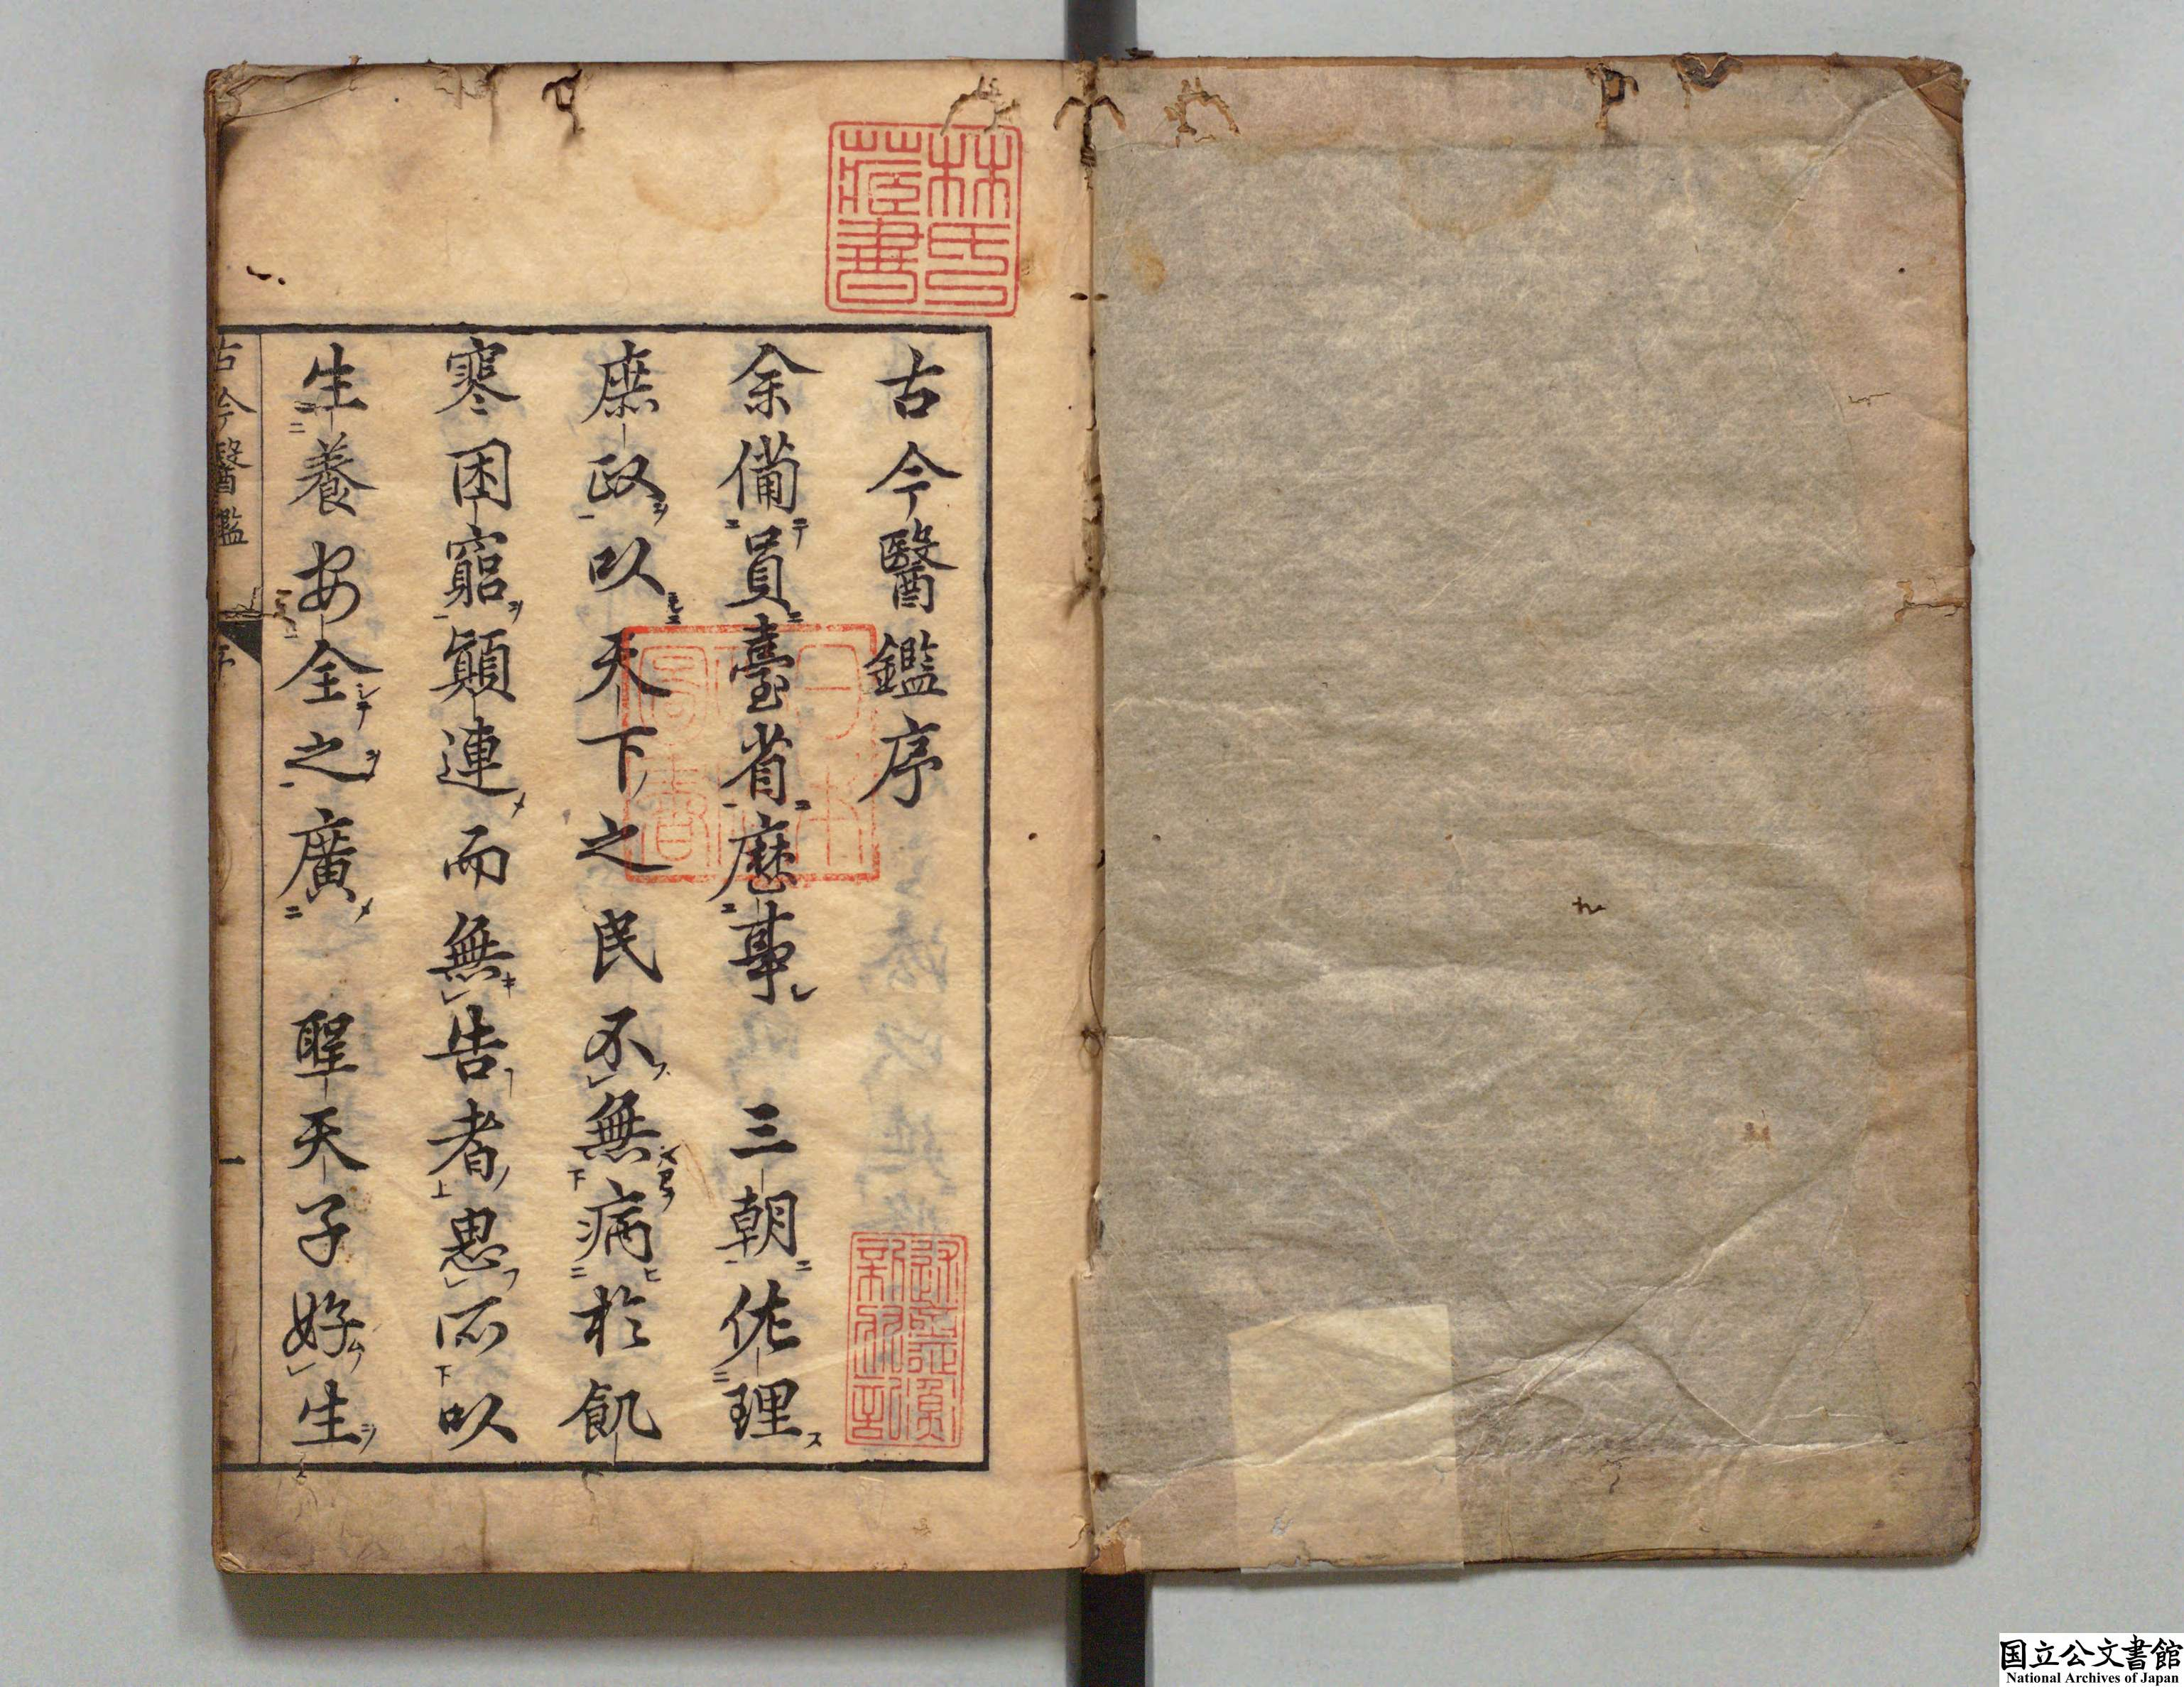 林氏
藏書
古今醫鑑序
余備員臺省歷事 三朝佐理
庶政以天下之民不無病於飢
寒困窮顛連而無告者思所以
生養安全之廣 聖天子好生
古今醫鑑
序
一
国立公文書館
National Archives of Japan